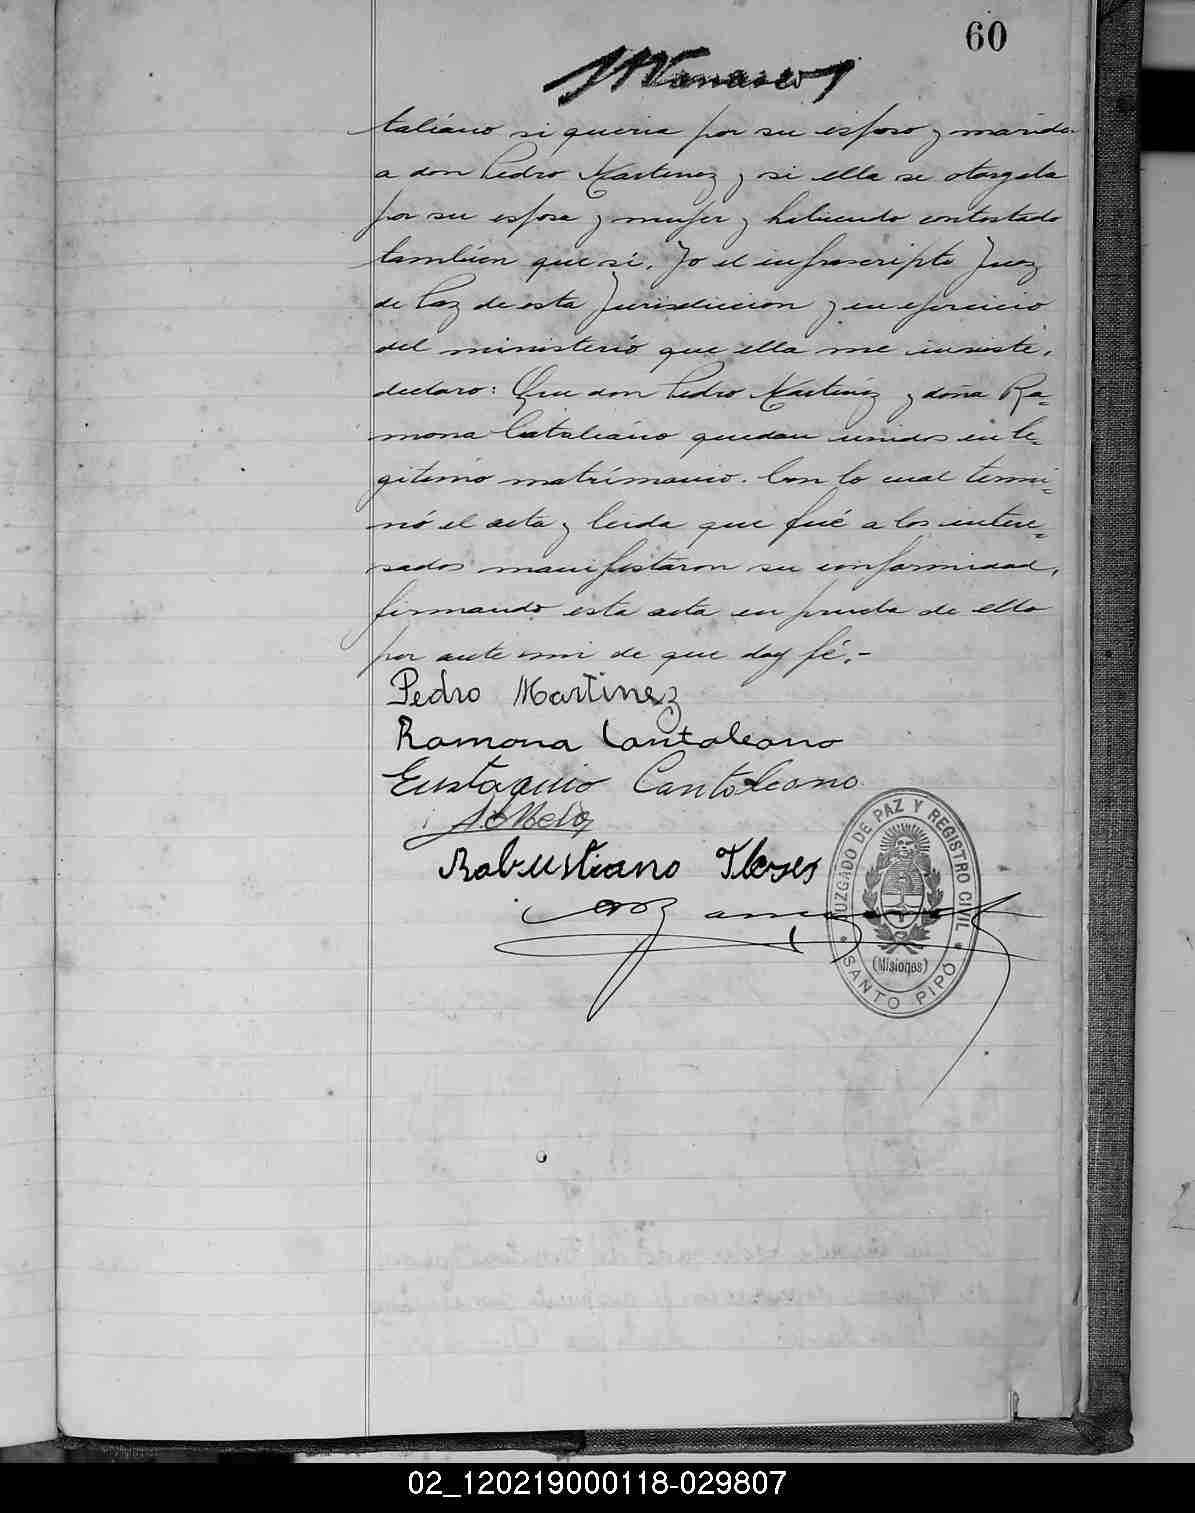 60
taliano si queria por su esposo y marido
a don Pedro Martinez y si ella se otorgaba
por su esposa y mujer y habiendo contestado
tambien que si. Yo el infrascripto Juez
de Paz de esta Jurisdiccion y en ejercicio
del ministerio que ella me inviste,
declaro: Que don Pedro Martinez y doña Ra=
mona Cataliano quedan unidos en le=
gitimo matrimonio. Con lo cual termi=
nó el acta y leida que fué a los intere=
sados manifestaron su conformidad,
firmando esta acta en prueba de ello
por ante mi de que doy fé.-
Pedro Martinez
Ramona Cantaleano
Eustaquio Cantaleano
Robustiano
JUZGADO DE PAZ Y REGISTRO CIVIL
(Misiones)
SANTO PIPÓ
02_120219000118-029807